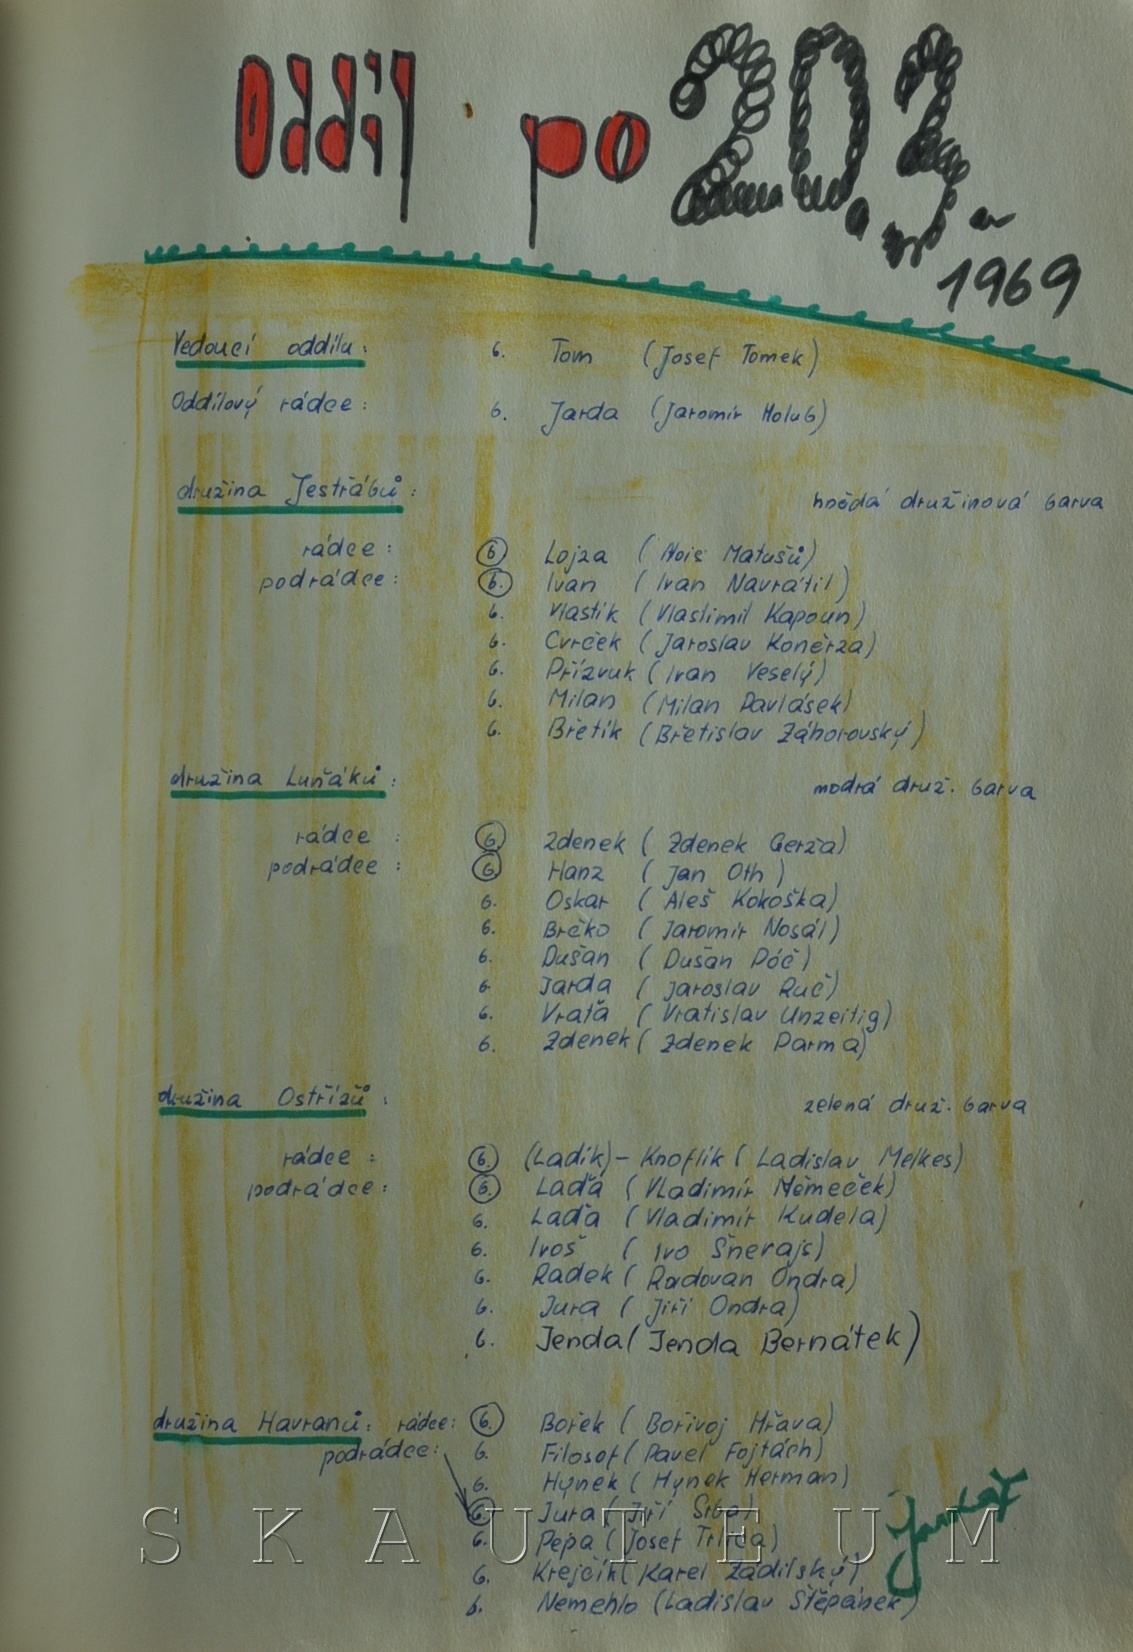 Oddíl po 20.3.
1969
Vedoucí oddílu: b. Tom (Josef Tomek)
Oddílový rádce: b. Jarda (Jaromír Holub)
družina Jestřábů: hnědá družinová barva
rádce: b. Lojza (Alois Matušů)
podrádce: b. Ivan (Ivan Navrátil)
b. Vlastík (Vlastimil Kapoun)
b. Cvrček (Jaroslav Koněrza)
b. Přízvuk (Ivan Veselý)
b. Milan (Milan Pavlásek)
b. Břetík (Břetislav Záhorovský)
družina Luňáků: modrá druž. barva
rádce: b. Zdenek (Zdenek Gerža)
podrádce: b. Hanz (Jan Oth)
b. Oskar (Aleš Kokoška)
b. Brčko (Jaromír Nosál)
b. Dušan (Dušan Póč)
b. Jarda (Jaroslav Ruč)
b. Vraťa (Vratislav Unzeitig)
b. Zdenek (Zdenek Parma)
družina Ostřížů: zelená druž. barva
rádce: b. (Ladík) - Knoflík (Ladislav Melkes)
podrádce: b. Laďa (Vladimír Němeček)
b. Laďa (Vladimír Kudela)
b. Ivoš (Ivo Šnerajs)
b. Radek (Radovan Ondra)
b. Jura (Jiří Ondra)
b. Jenda (Jenda Bernátek)
družina Havranů: rádce: b. Bořek (Bořivoj Hřava)
podrádce: b. Filosof (Pavel Fojtách)
b. Hynek (Hynek Herman)
b. Jura (Jiří Srba)
b. Pepa (Josef)
b. Krejčík (Karel Zádilský)
b. Nemehlo (Ladislav Štěpánek)
SKAUTEUM